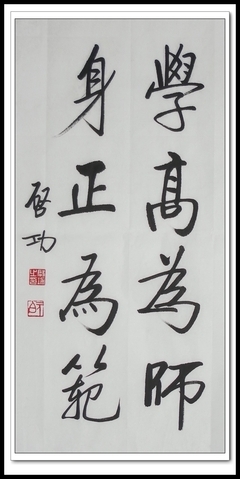 學高為師
身正為範
啓功